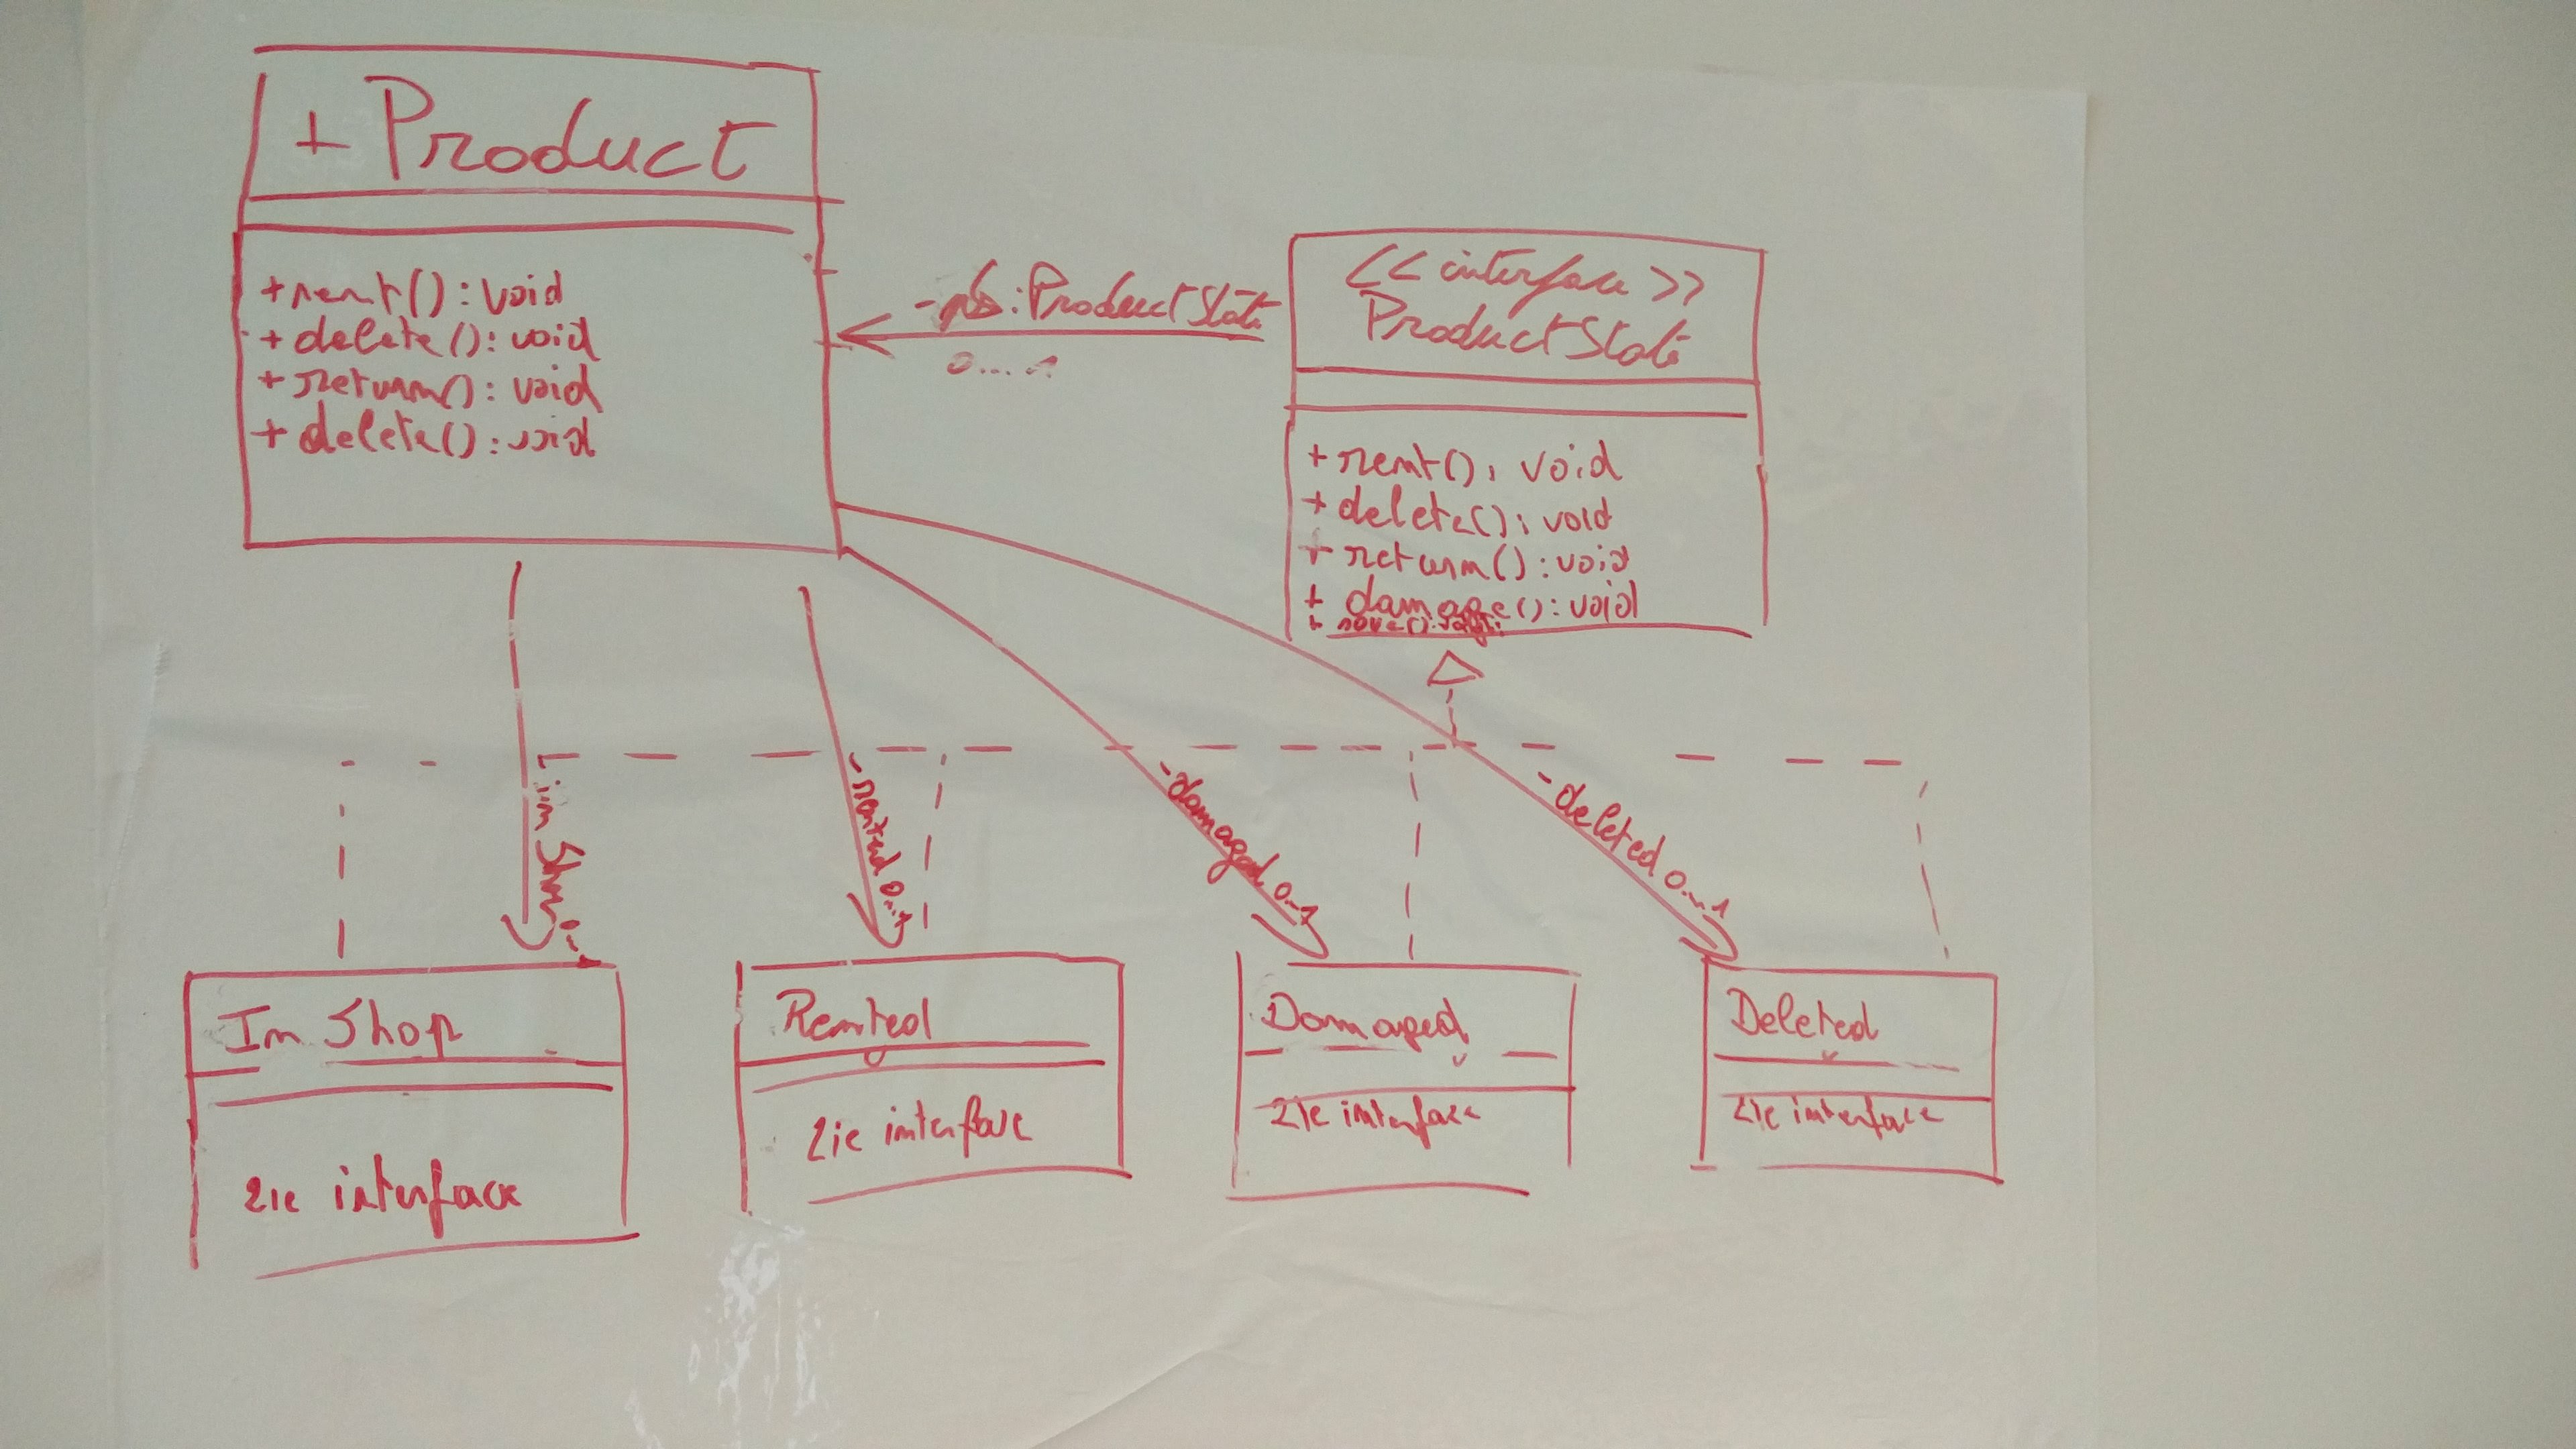 + Product
+ rent() : void
+ delete() : void
+ return() : void
+ delete() : void
- : ProductState
0....1
<< interface >>
ProductState
+ rent() : void
+ delete() : void
+ return() : void
+ damage() : void
- rented 0..1
- damaged 0..1
- deleted 0...1
In Shop
zie interface
Rented
zie interface
Damaged
zie interface
Deleted
zie interface